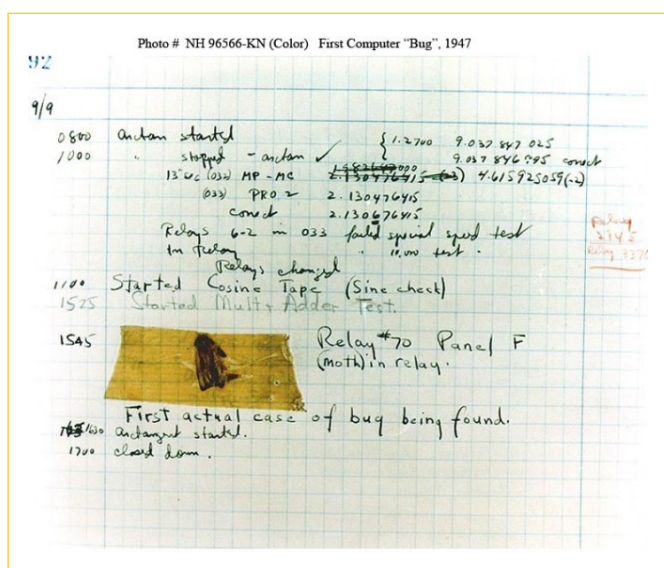 Photo # NH 96566-KN (Color) First Computer “Bug”, 1947
92
9/9
0800 antan started
1000 " stopped - antan ✓ { 1.2700 9.037 847 025
9.037 846 995 conect
13" uc (032) MP - MC 2.130476415 4.615925059(-2)
(033) PRO 2 2.130476415
conect 2.130676415
Relays 6-2 in 033 failed special speed test
in relay " 10.000 test .
Relays changed
Relay
1100 Started Cosine Tape (Sine check)
1525 Started Mult+ Adder Test.
1545 Relay #70 Panel F
(moth) in relay.
First actual case of bug being found.
1630 antangent started.
1700 closed down .